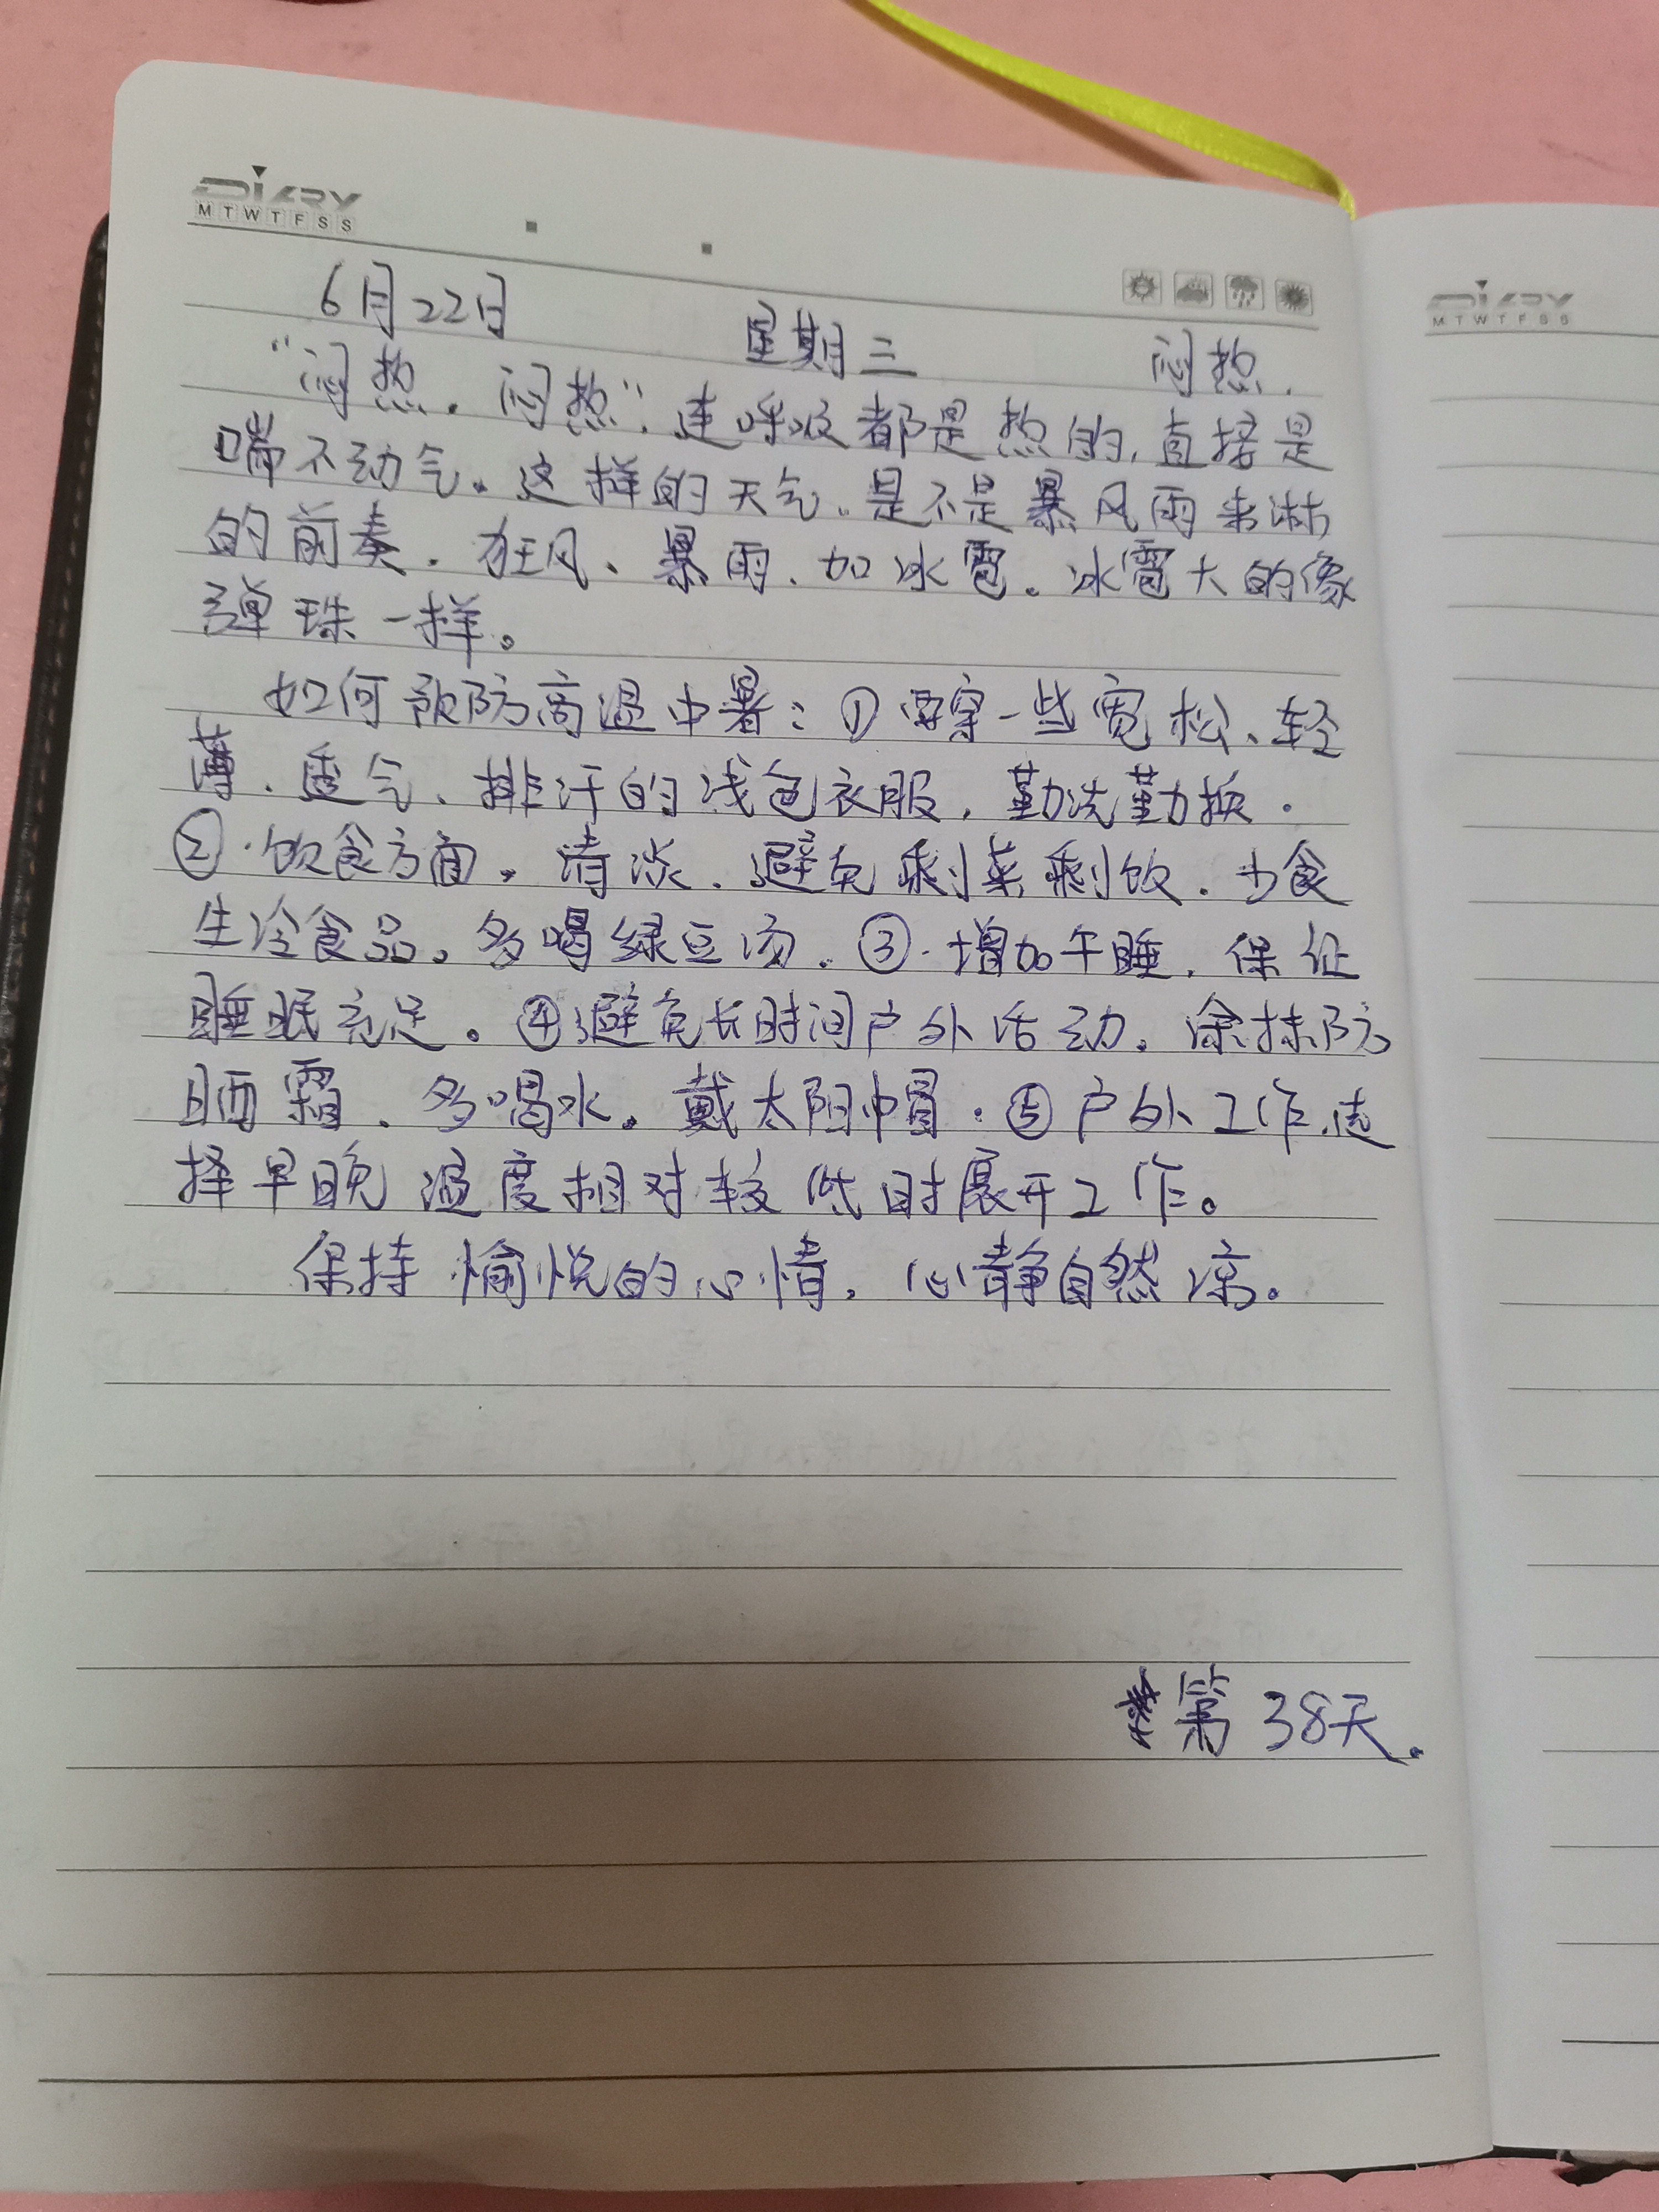 DIARY
M T W T F S S
6月22日 星期三 闷热.
"闷热.闷热".连呼吸都是热的,直接是
喘不动气。这样的天气.是不是暴风雨来淋
的前奏.狂风、暴雨、加冰雹。冰雹大的像
弹珠一样。
如何预防高温中暑:①要穿一些宽松、轻
薄、透气、排汗的浅色衣服,勤洗勤换.
②.饮食方面。清淡.避免剩菜剩饭.少食
生冷食品。多喝绿豆汤.③.增加午睡.保证
睡眠充足。④避免长时间户外活动。涂抹防
晒霜.多喝水。戴太阳帽.⑤户外工作.选
择早晚温度相对较低时展开工作。
保持愉悦的心情,心静自然凉。
第38天.
DIARY
M T W T F S S